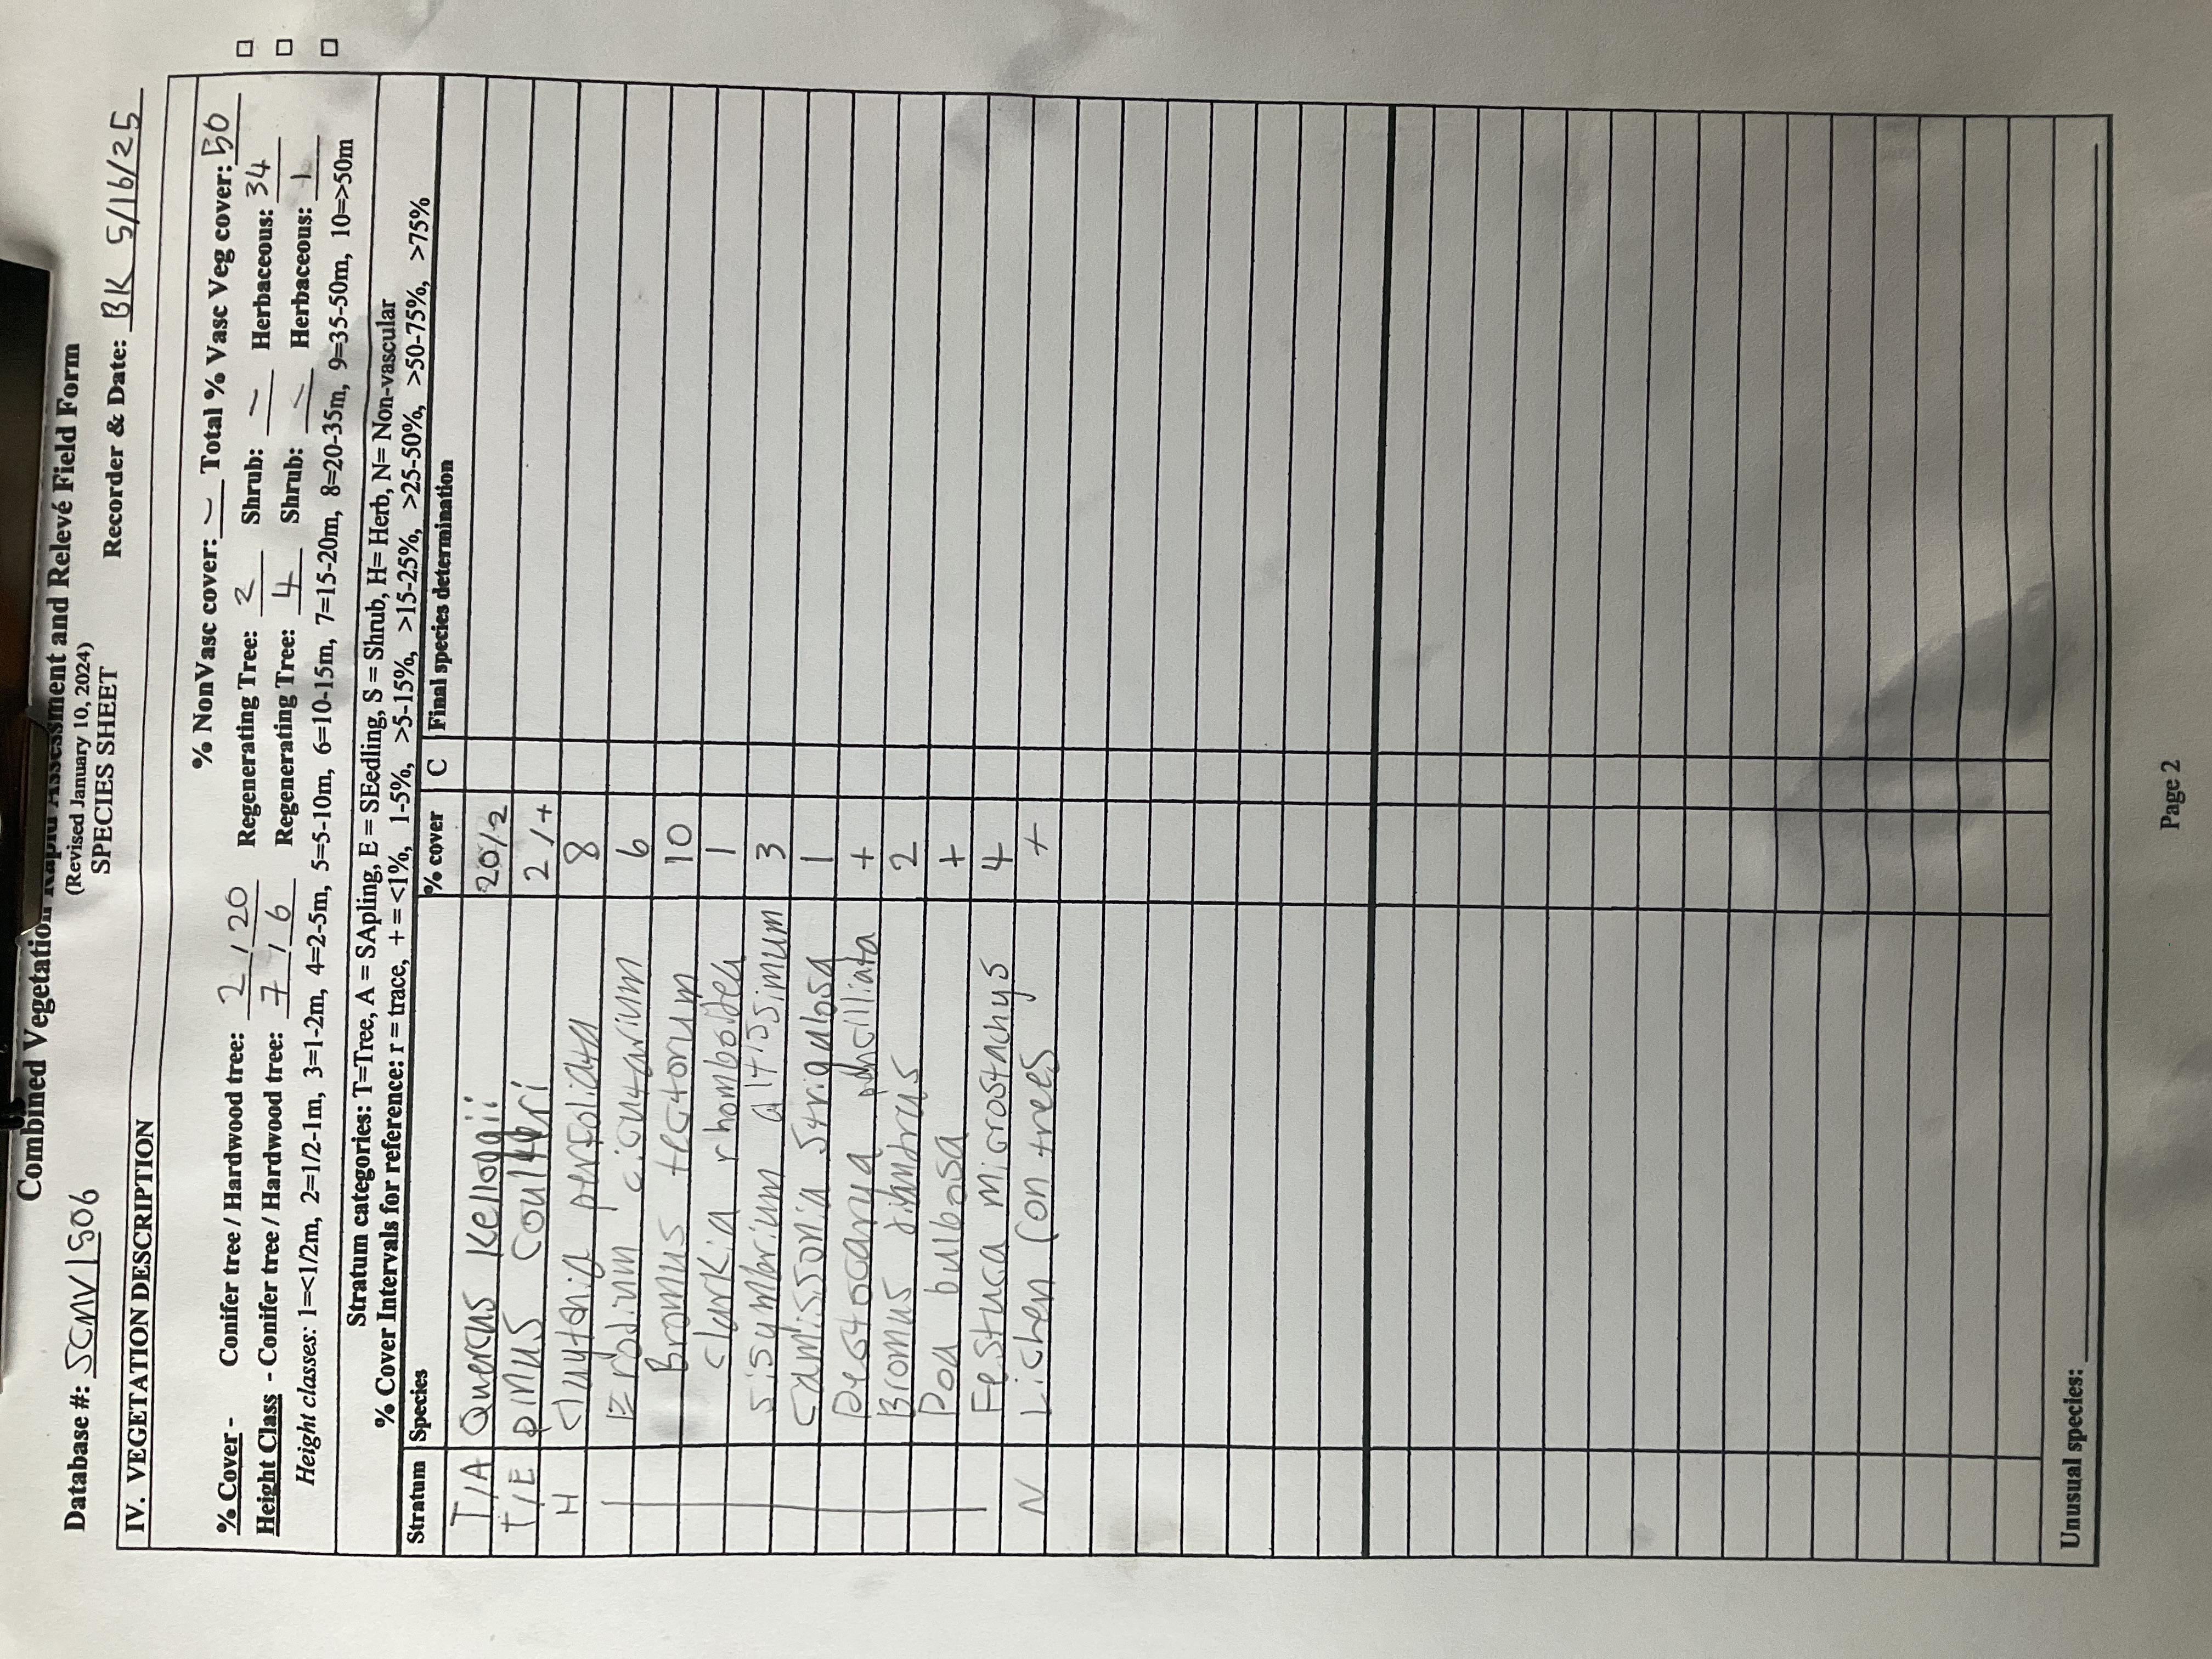 Combined Vegetation Rapid Assessment and Relevé Field Form
(Revised January 10, 2024)
SPECIES SHEET
Database #: SCNV1506 Recorder & Date: BK 5/16/25
IV. VEGETATION DESCRIPTION
% NonVasc cover: – Total % Vasc Veg cover: 50
% Cover - Conifer tree / Hardwood tree: 2 / 20 Regenerating Tree: 2 Shrub: – Herbaceous: 34 □
Height Class - Conifer tree / Hardwood tree: 7 / 6 Regenerating Tree: 4 Shrub: – Herbaceous: 1 □
Height classes: 1=<1/2m, 2=1/2-1m, 3=1-2m, 4=2-5m, 5=5-10m, 6=10-15m, 7=15-20m, 8=20-35m, 9=35-50m, 10=>50m □
Stratum categories: T=Tree, A = SApling, E = SEedling, S = Shrub, H= Herb, N= Non-vascular
% Cover Intervals for reference: r = trace, + = <1%, 1-5%, >5-15%, >15-25%, >25-50%, >50-75%, >75%
Stratum Species % cover C Final species determination
T/A Quercus Kelloggii 20/2
T/E pinus Coulteri 2/+
H Claytonia perfoliata 8
Erodium cicutarium 6
Bromus tectorum 10
Clarkia rhomboidea 1
Sisymbrium altissimum 3
Camissonia strigulosa 1
Pectocarya pencilliata +
Bromus diandrus 2
Poa bulbosa +
Festuca microstachys 4
N Lichen (on trees +
Unusual species:
Page 2